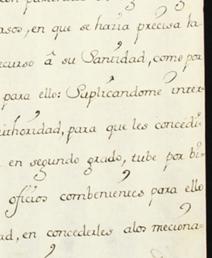 asos, en que se haria precisa la
ecurso â su Santidad, como por
para ello: Suplicandome inter-
uthoridad, para que les concedi-
en segundo grado, tube por bi-
oficios combenientes para ello
ad, en concederles alos meciona-